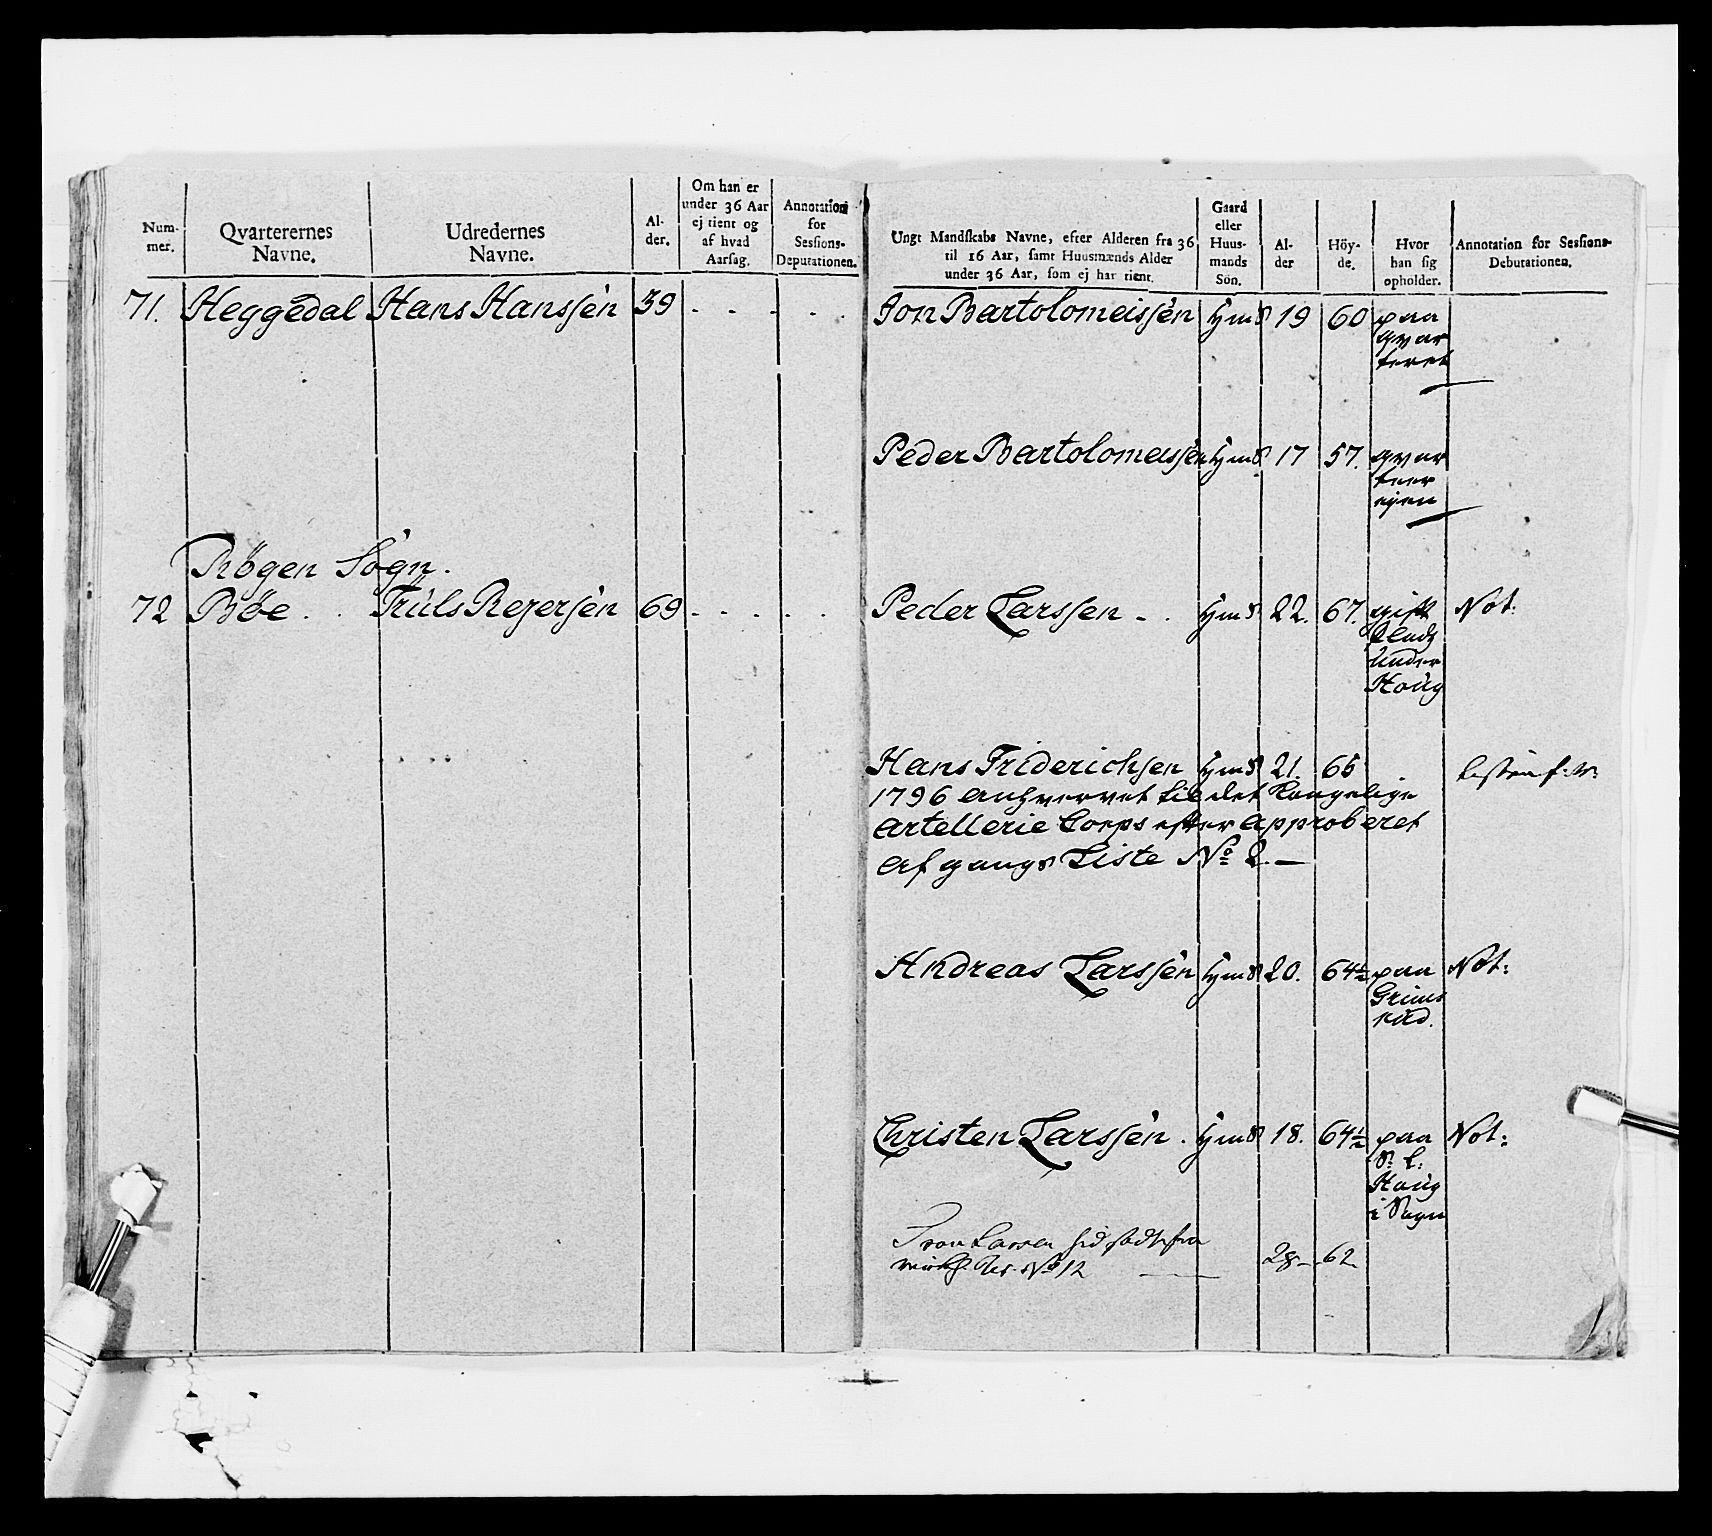 Num-
mer.
Qvarterernes
Navne.
Udredernes
Navne.
Al-
der.
Om han er
under 36 Aar
ej tient og
af hvad
Aarsag.
Annotation
for
Sessions-
Deputationen.
71. Heggedal Hans Hanssen 39
Røgen Sogn.
72 Bøe. Truls Rejersen 69
Ungt Mandskabs Navne, efter Alderen fra 36
til 16 Aar, samt Huusmænds Alder
under 36 Aar, som ej har tient.
Gaard
eller
Huus-
mands
Sön.
Al-
der
Höy-
de.
Hvor
han sig
opholder.
Annotation for Sessions-
Debutationen.
Jon Bartolomeissen HmS 19 60 paa
qvar
teret
Peder Bartolomeissen HmS 17 57. qvar
teer
ejeren
Peder Larssen HmS 22. 67. gift Not:
Plads
under
Houg
Hans Friderichsen HmS 21. 65
1796 anhvervet til det Kongelige
Artellerie Corps efter approberet
Afgangs Liste No 2.
Andreas Larssen HmS 20. 64½ paa Not:
Grims
rud.
Christen Larssen. HmS 18. 64½ paa Not:
Houg
i Sogn
Larsen fra 28 - 62
No 12